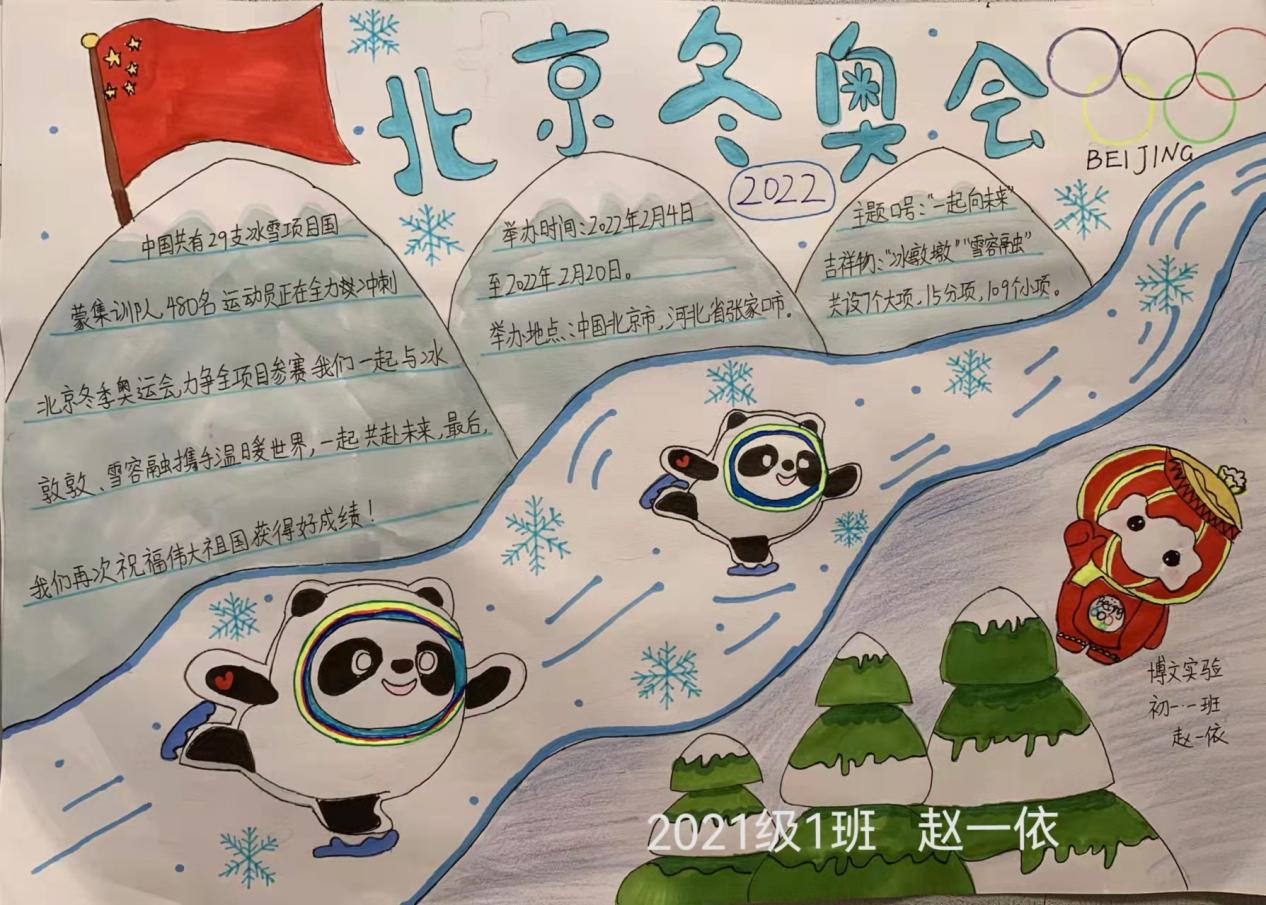 北京冬奥会
BEIJING
2022
中国共有29支冰雪项目国
蒙集训队人,480名运动员正在全力以冲刺
北京冬季奥运会,力争全项目参赛 我们一起与冰
敦敦、雪容融携手温暖世界,一起共赴未来,最后,
我们再次祝福伟大祖国获得好成绩!
举办时间:2022年2月4日
至2022年2月20日。
举办地点:中国北京市,河北省张家口市。
主题口号:“一起向未来”
吉祥物:“冰墩墩”“雪容融”
共设7个大项,15分项,109个小项。
博文实验
初一·一班
赵一依
2021级1班 赵一依